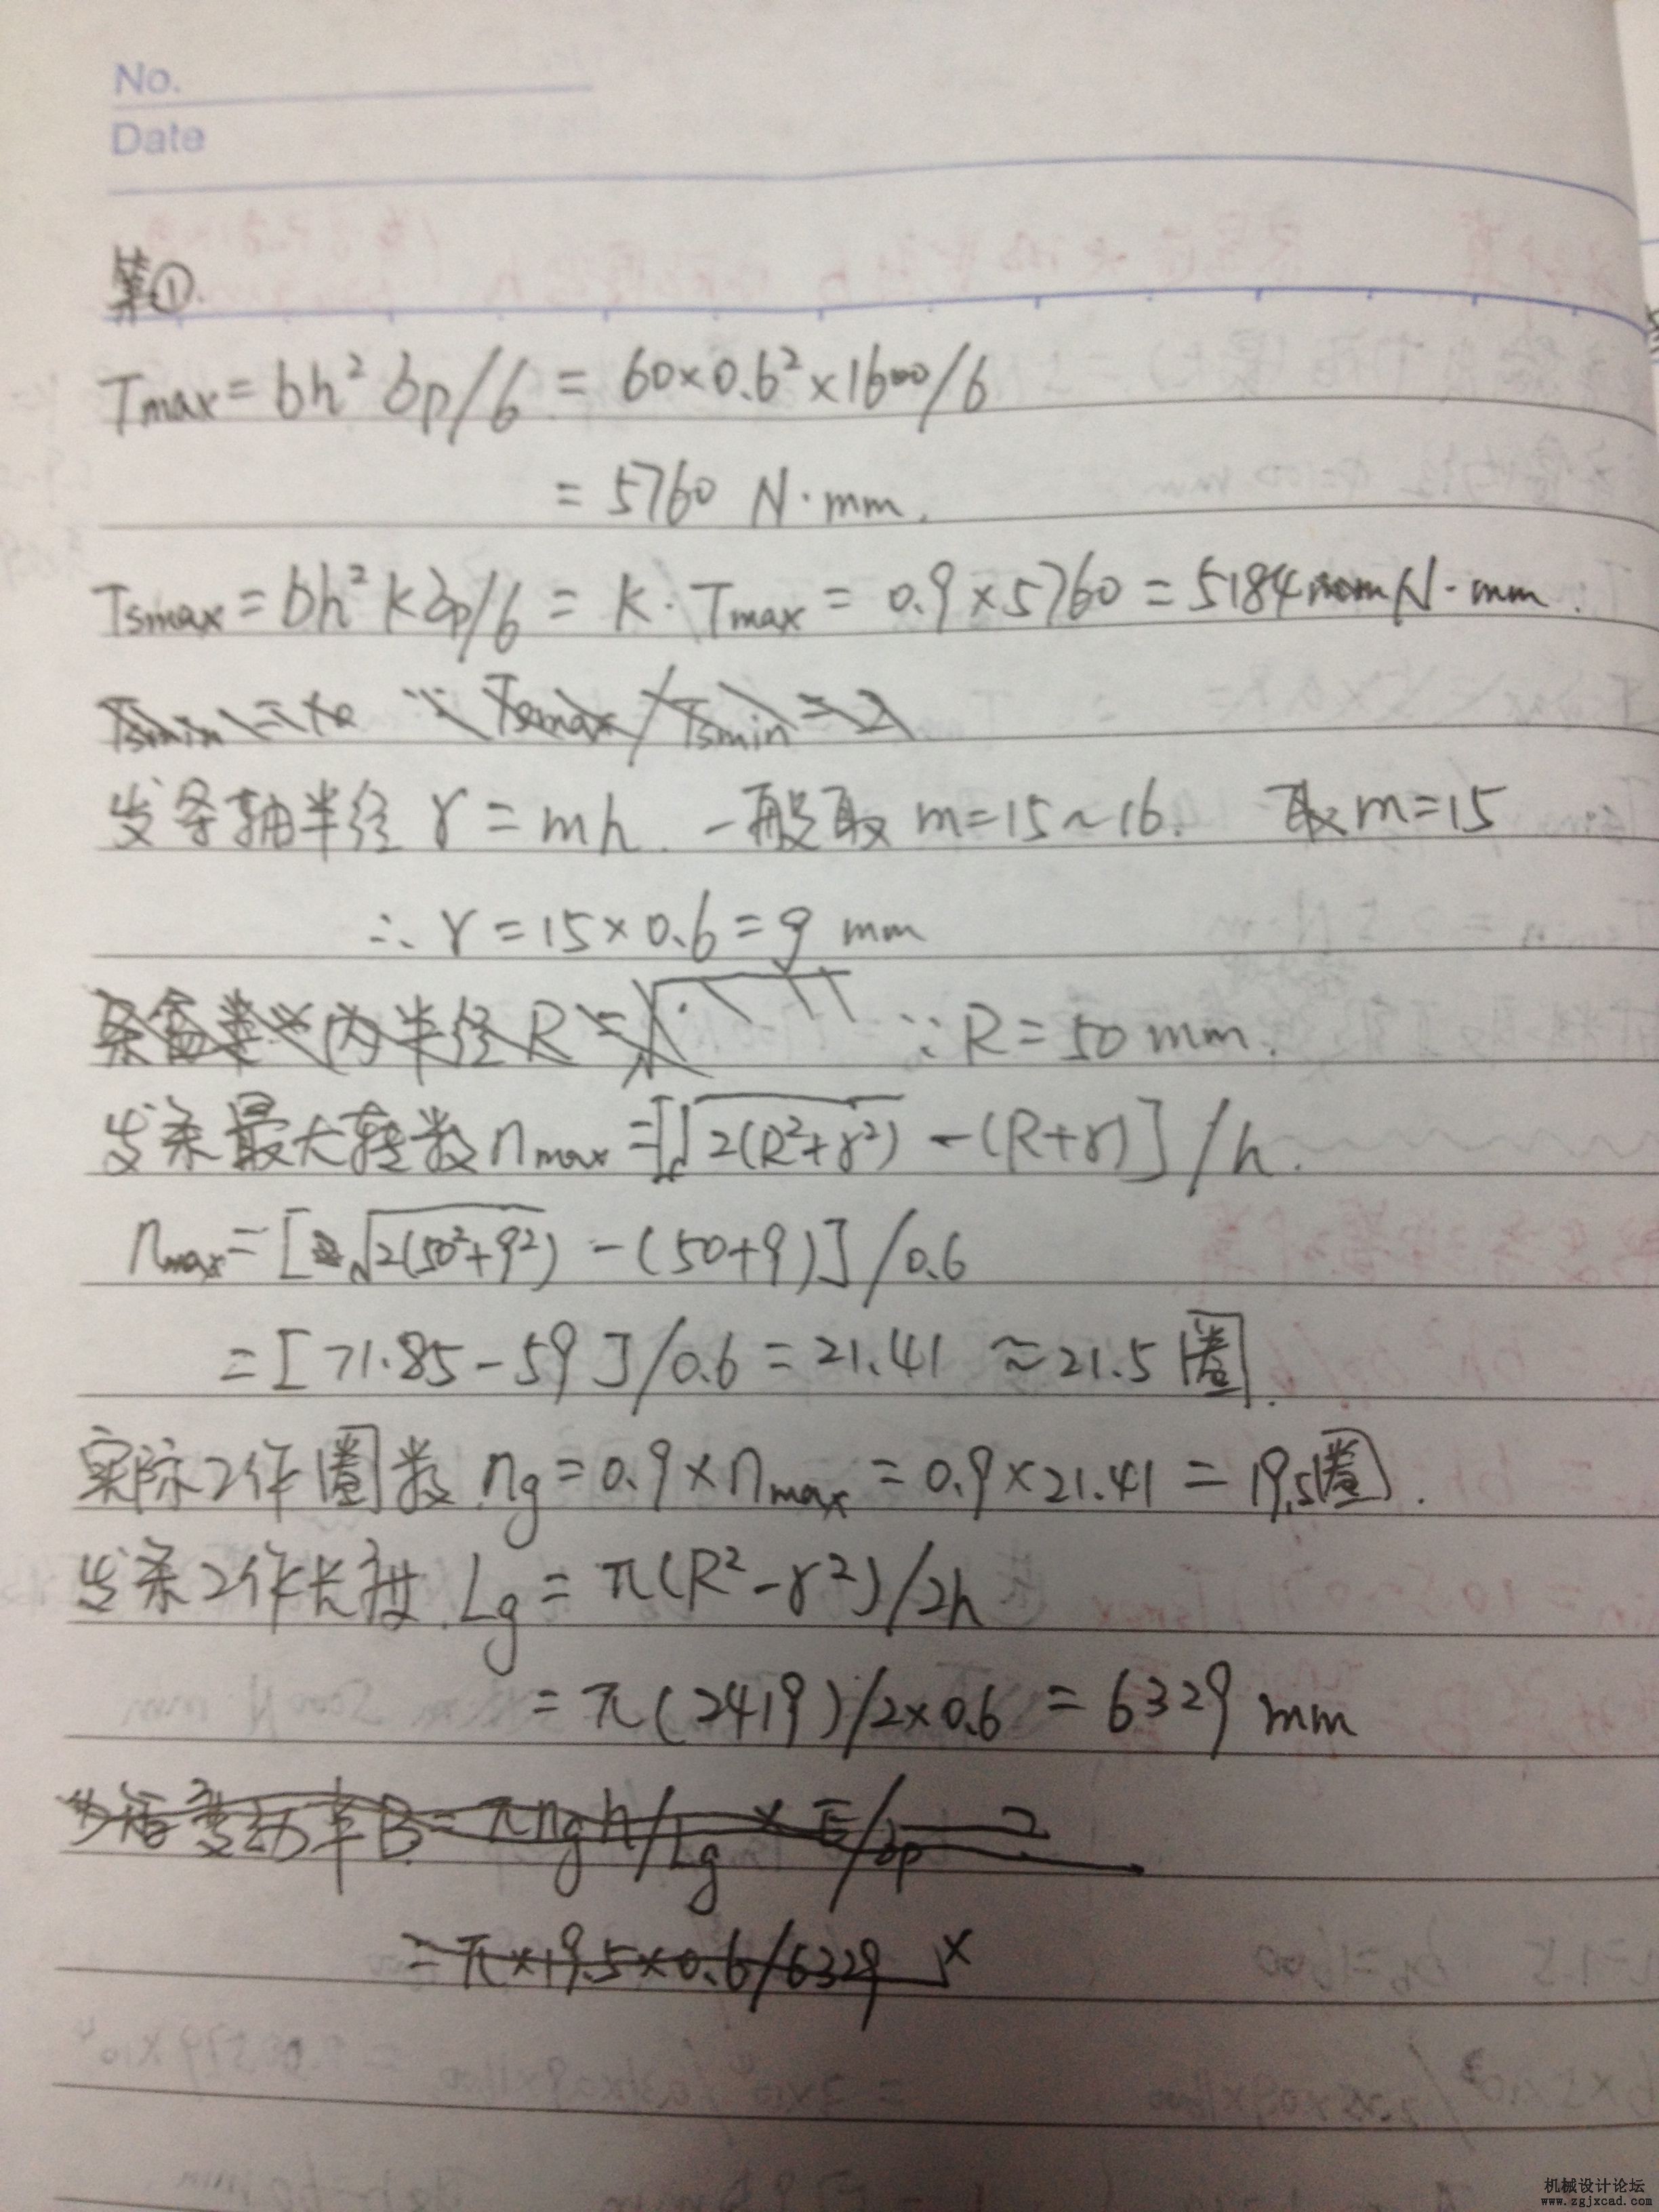 No.
Date
第①.
Tmax = bh² σp/6 = 60×0.6²×1600/6
= 5760 N·mm.
Tsmax = bh² kσp/6 = K·Tmax = 0.9×5760 = 5184 N·mm.
Tsmin = ∵ Tsmax/Tsmin = 2
发条轴半径 r = mh. 一般取 m=15~16. 取 m=15
∴ r = 15×0.6 = 9 mm
内半径 R = √ ∵ R = 50 mm.
发条最大转数 nmax = [√2(R²+r²) - (R+r)] / h.
nmax = [√2(50²+9²) - (50+9)] / 0.6
= [71.85-59]/0.6 = 21.41 ≈ 21.5圈.
实际工作圈数 ng = 0.9×nmax = 0.9×21.41 = 19.5圈.
发条工作长度 Lg = π(R²-r²)/2h
= π(2419)/2×0.6 = 6329 mm
变动率B = πngh/Lg × E/σp
= π×19.5×0.6/6329 ×
机械设计论坛
www.zgjxcad.com